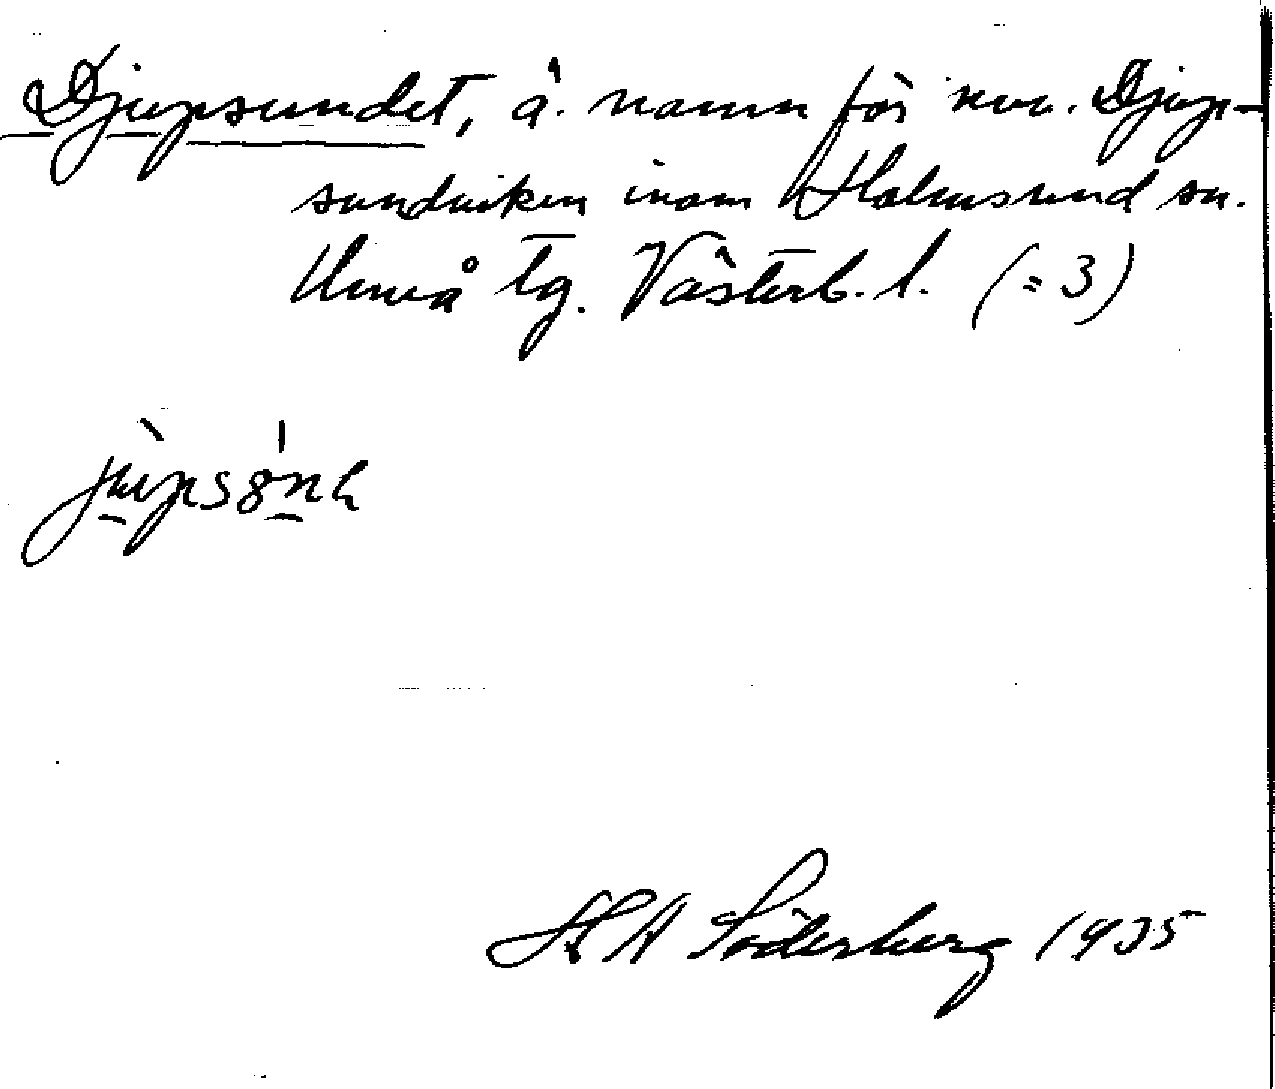 Djupsundet, ä. namn för nuv. Djup-
sundviken inom Holmsund sn.
Umeå tg. Västerb. l. (=3)
St A Söderberg 1935